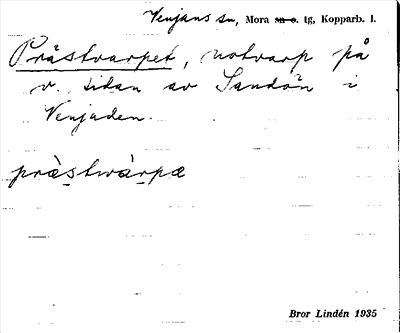 Venjans sn, Mora sn o. tg, Kopparb. l.
Prästvarpet, notvarp på
v. sidan av Sandön i
Venjaden.
prästwàrpæ
Bror Lindén 1935